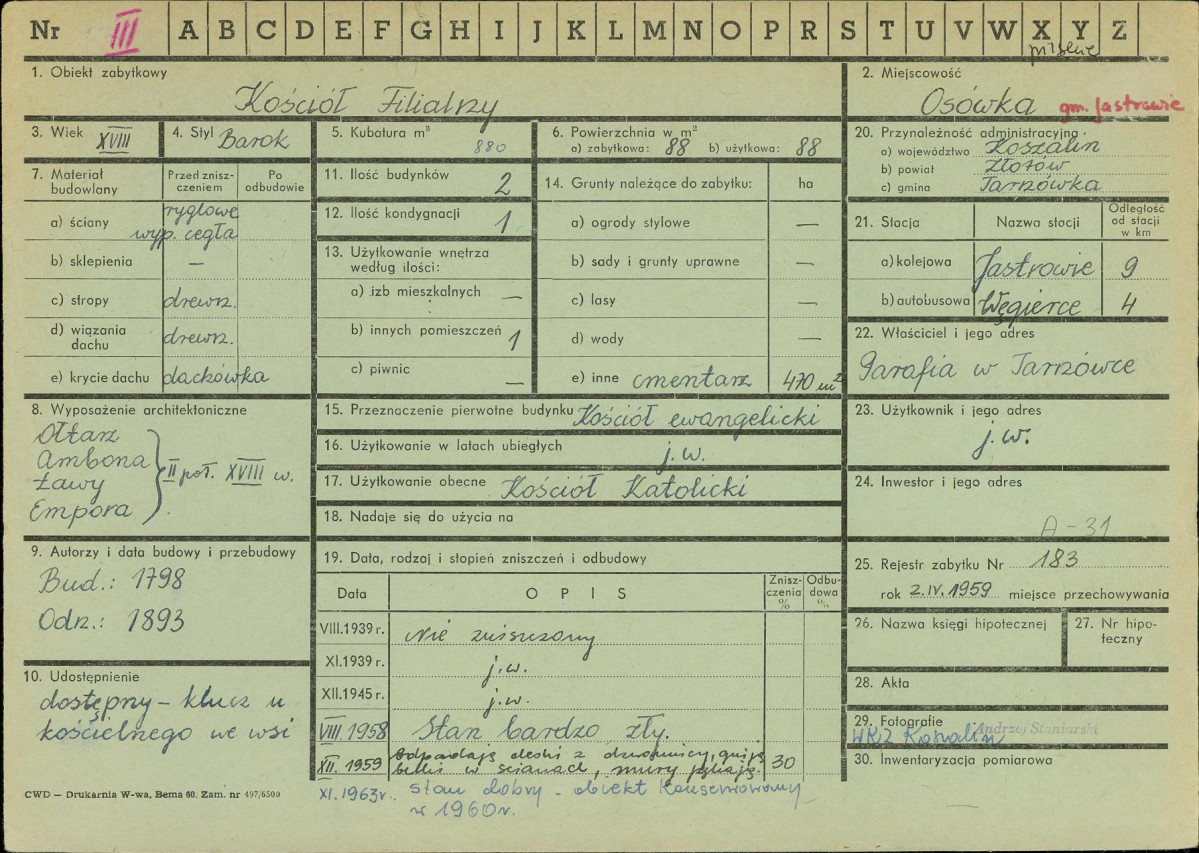 Nr III A B C D E F G H I J K L M N O P R S T U V W X Y Z
1. Obiekt zabytkowy
Kościół Filialny
2. Miejscowość
Osówka gm. Jastrowie
3. Wiek XVIII
4. Styl Barok
5. Kubatura m³
880
6. Powierzchnia w m²
a) zabytkowa: 88 b) użytkowa: 88
20. Przynależność administracyjna
a) województwo Koszalin
b) powiat Złotów
c) gmina Tarnówka
7. Materiał budowlany
Przed zniszczeniem
Po odbudowie
a) ściany ryglowe
wyp. cegłą
b) sklepienia —
c) stropy drewn.
d) wiązania dachu drewn.
e) krycie dachu dachówka
11. Ilość budynków 2
12. Ilość kondygnacji 1
13. Użytkowanie wnętrza
według ilości:
a) izb mieszkalnych —
b) innych pomieszczeń 1
c) piwnic —
14. Grunty należące do zabytku: ha
a) ogrody stylowe —
b) sady i grunty uprawne —
c) lasy —
d) wody —
e) inne cmentarz 470 m²
21. Stacja
Nazwa stacji
Odległość od stacji w km
a) kolejowa Jastrowie 9
b) autobusowa Węgierce 4
22. Właściciel i jego adres
Parafia w Tarnówce
8. Wyposażenie architektoniczne
Ołtarz
Ambona
Ławy
Empora
II poł. XVIII w.
15. Przeznaczenie pierwotne budynku Kościół ewangelicki
16. Użytkowanie w latach ubiegłych j.w.
17. Użytkowanie obecne Kościół Katolicki
18. Nadaje się do użycia na
23. Użytkownik i jego adres
j.w.
24. Inwestor i jego adres
A-31
9. Autorzy i data budowy i przebudowy
Bud.: 1798
Odn.: 1893
19. Data, rodzaj i stopień zniszczeń i odbudowy
Data
OPIS
Zniszczenia %
Odbudowa %
VIII.1939 r. Nie zniszczony
XI.1939 r. j.w.
XII.1945 r. j.w.
VIII.1958 Stan bardzo zły.
XII.1959 Odpadają deski z dzwonnicy, gniją
belki w ścianach, mury pękają. 30
XI.1963 r. stan dobry - obiekt konserwowany
w 1960 r.
25. Rejestr zabytku Nr 183
rok 2.IV.1959 miejsce przechowywania
26. Nazwa księgi hipotecznej
27. Nr hipoteczny
28. Akta
29. Fotografie
WKZ Koszalin
30. Inwentaryzacja pomiarowa
10. Udostępnienie
dostępny - klucz u
kościelnego we wsi
CWD — Drukarnia W-wa, Bema 60. Zam. nr 497/6500